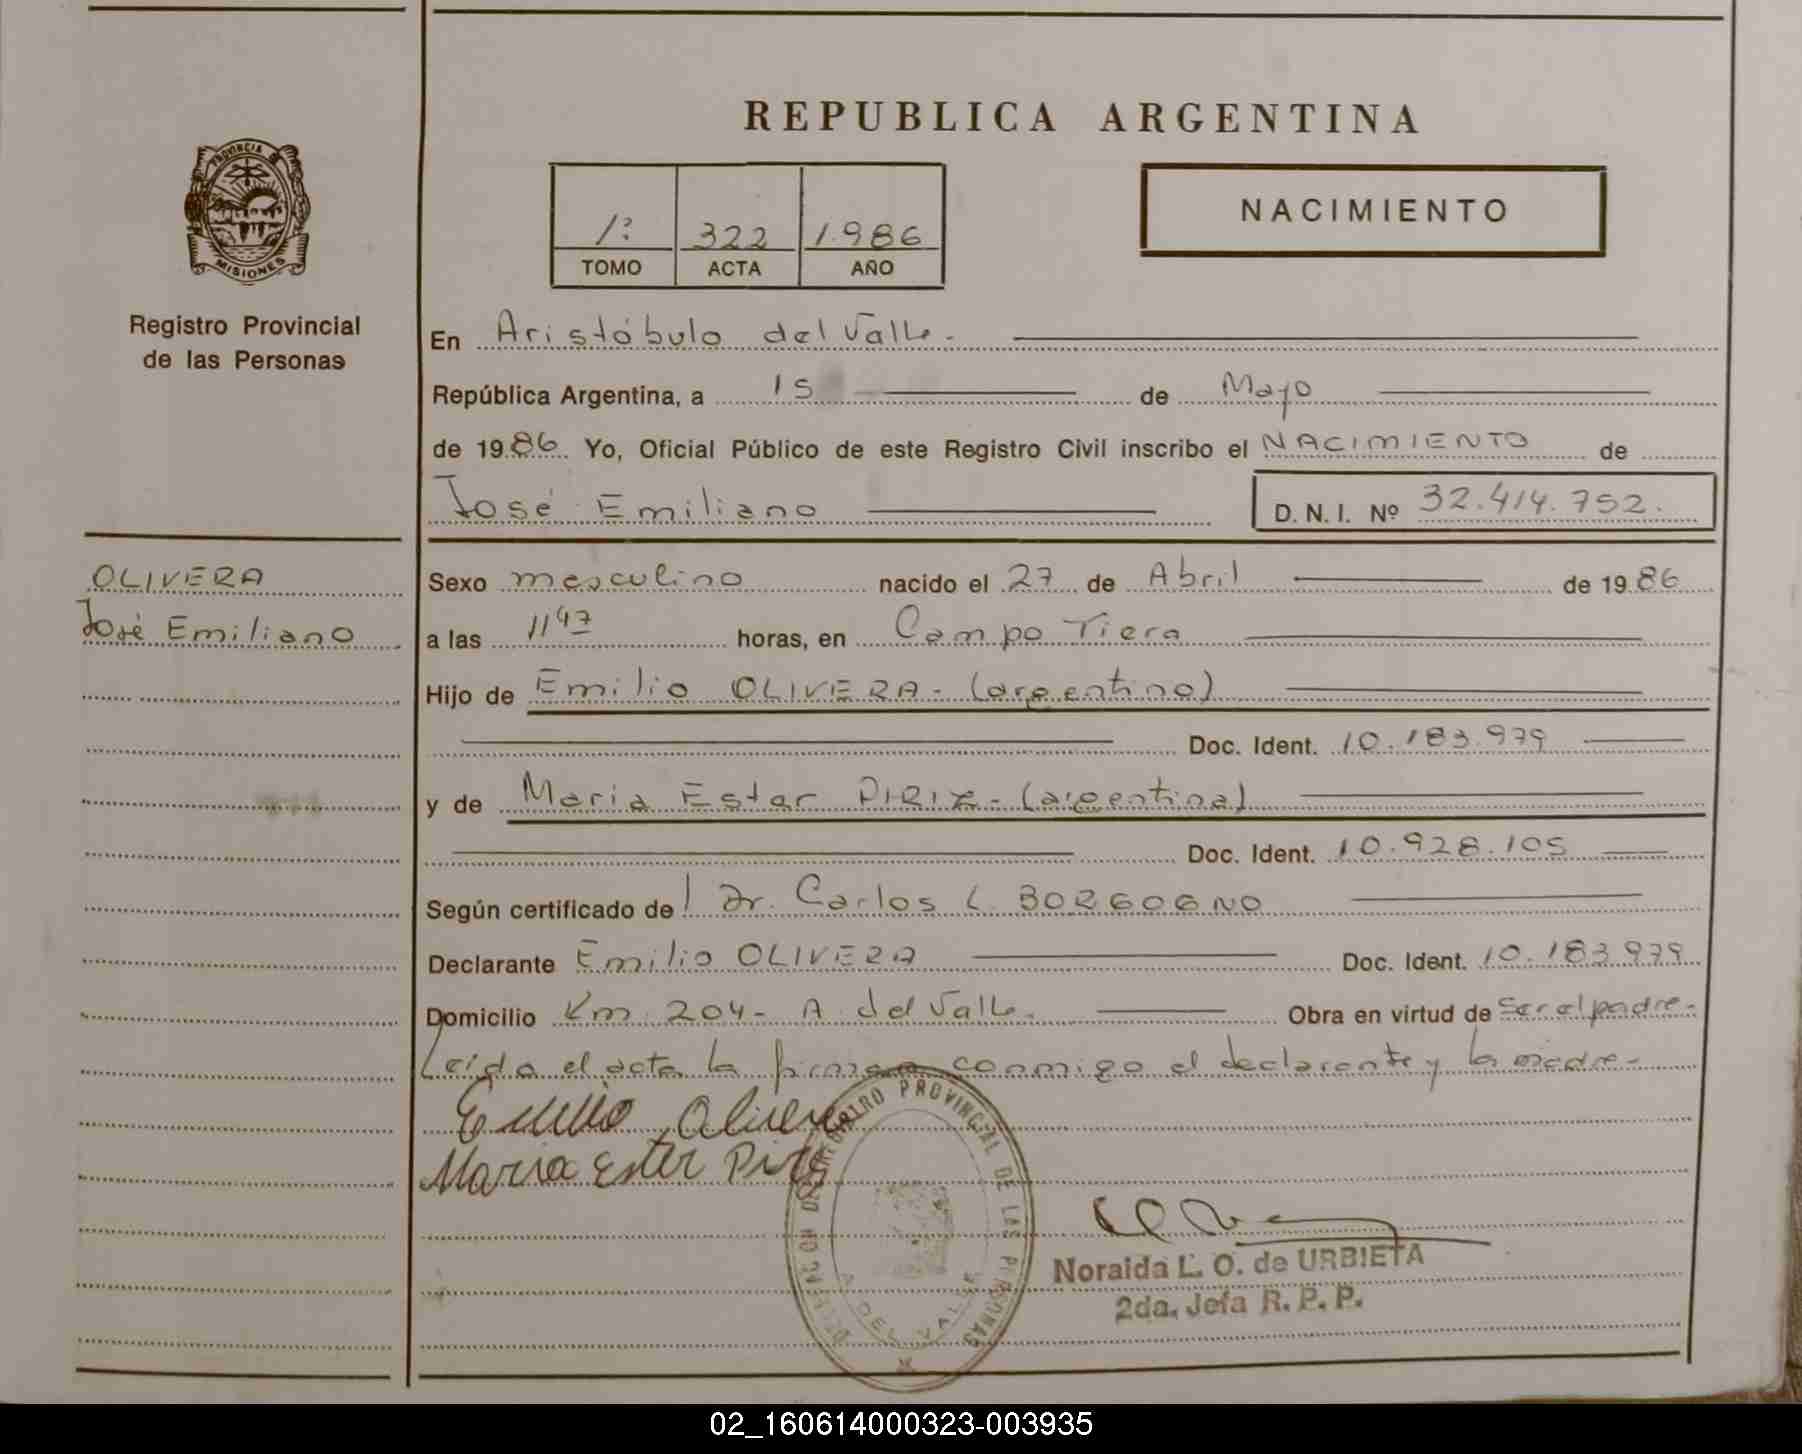 REPUBLICA ARGENTINA
PROVINCIA DE
MISIONES
Registro Provincial
de las Personas
1º 322 1.986
TOMO ACTA AÑO
NACIMIENTO
En Aristóbulo del Valle.
República Argentina, a 15 de Mayo
de 1986 Yo, Oficial Público de este Registro Civil inscribo el NACIMIENTO de
José Emiliano D. N. I. Nº 32.414.752.
OLIVERA
José Emiliano
Sexo masculino nacido el 27 de Abril de 1986
a las 11 47 horas, en Campo Tiera
Hijo de Emilio OLIVERA - (argentino)
Doc. Ident. 10.183.979
y de Maria Ester PIRIZ - (argentina)
Doc. Ident. 10.928.105
Según certificado de Dr. Carlos L. BORGOGNO
Declarante Emilio OLIVERA Doc. Ident. 10.183.979
Domicilio Km 204 - A. del Valle. Obra en virtud de ser el padre-
Leída el acta la firman conmigo el declarante y la madre-
Emilio Olivera
Maria Ester Piriz
DELEGACION DEL REGISTRO PROVINCIAL DE LAS PERSONAS
A. DEL VALLE
Noraida L. O. de URBIETA
2da. Jefa R. P. P.
02_160614000323-003935